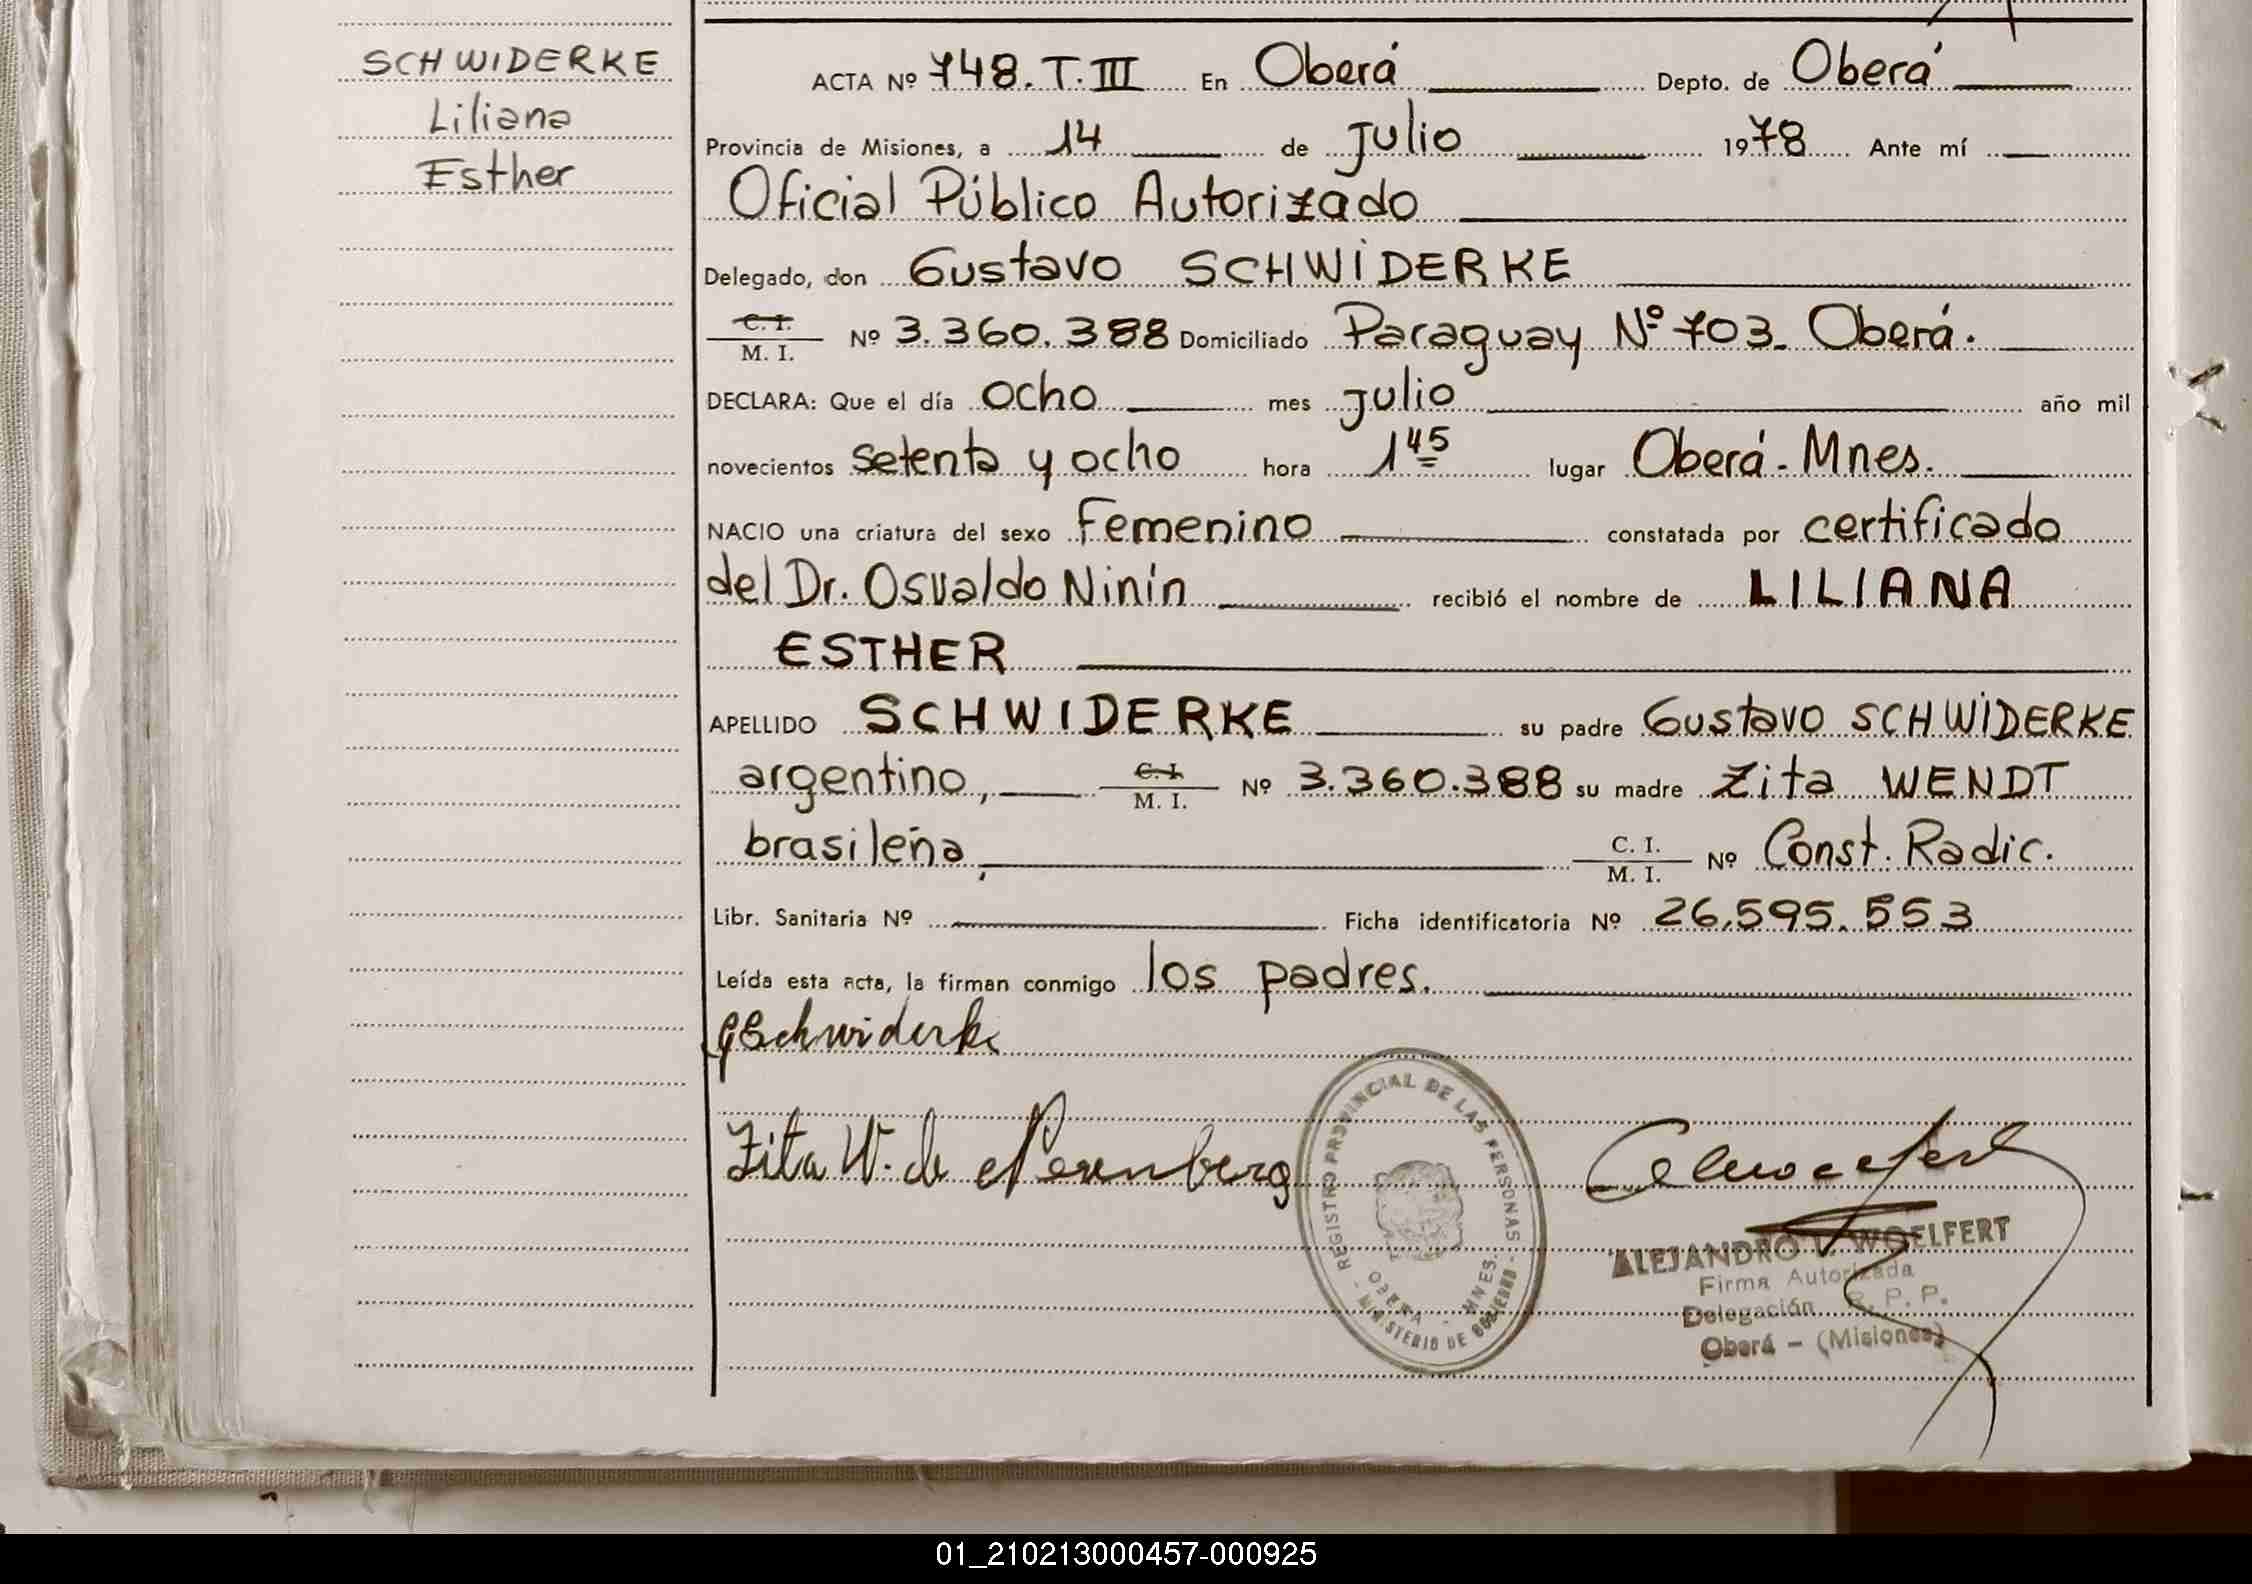 SCHWIDERKE
Liliana
Esther
ACTA Nº 748. T. III En Oberá Depto. de Oberá
Provincia de Misiones, a 14 de julio 1978 Ante mí
Oficial Público Autorizado
Delegado, don Gustavo SCHWIDERKE
C. I.
M. I. Nº 3.360.388 Domiciliado Paraguay Nº 703. Oberá.
DECLARA: Que el día ocho mes julio año mil
novecientos setenta y ocho hora 1 45 lugar Oberá - Mnes.
NACIO una criatura del sexo Femenino constatada por certificado
del Dr. Osvaldo Ninín recibió el nombre de LILIANA
ESTHER
APELLIDO SCHWIDERKE su padre Gustavo SCHWIDERKE
argentino, C. I.
M. I. Nº 3.360.388 su madre Zita WENDT
brasileña, C. I.
M. I. Nº Const. Radic.
Libr. Sanitaria Nº Ficha identificatoria Nº 26.595.553
Leída esta acta, la firman conmigo los padres.
GSchwiderke
Zita W. de
REGISTRO PROVINCIAL DE LAS PERSONAS
OBERA - MNES.
MINISTERIO DE GOBIERNO
ALEJANDRO WOELFERT
Firma Autorizada
Delegación R. P. P.
Oberá - (Misiones)
01_210213000457-000925